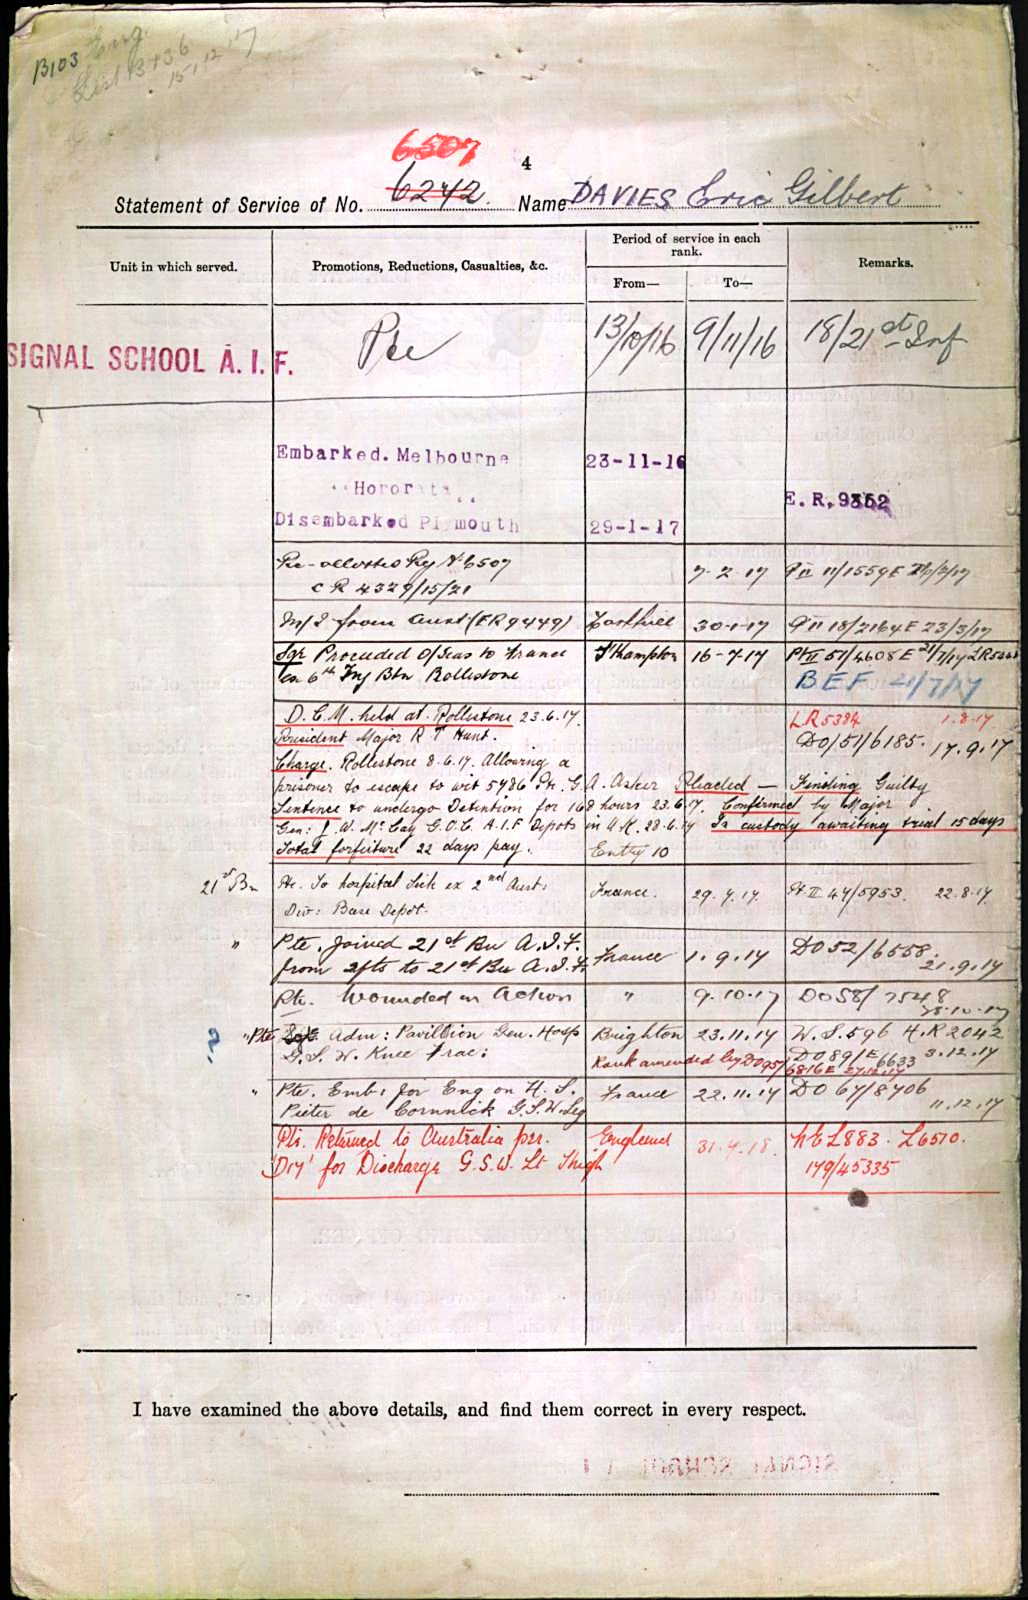 B103 Eng.
List B 436
15.12.17
6507
4
Statement of Service of No. 6242 Name DAVIES Eric Gilbert
Unit in which served.
Promotions, Reductions, Casualties, &c.
Period of service in each rank.
From—
To—
Remarks.
SIGNAL SCHOOL A. I. F.
Pte
13/10/16
9/11/16
18/21st Inf
Embarked. Melbourne
23-11-16
"Hororata"
E.R. 9352
Disembarked Plymouth
29-1-17
Re-allotted Reg No 6507
7-2-17
PII 11/1559E
CR 4329/15/21
M/I from Aust (ER 9449)
30-1-17
PII 18/2164E 23/3/17
Sgt Proceeded O/Seas to France
S'Hampton
16-7-17
Pt II 51/4608E 21/7/17 LR
ex 6th Trg Btn Rollestone
BEF 21/7/17
D.C.M. held at Rollestone 23.6.17.
LR 5384 1.8.17
President Major R T Hunt.
DO/51/6185. 17.9.17
Charge. Rollestone 8.6.17. Allowing a
prisoner to escape to wit 5786 Pte. G. A. Asker Pleaded — Finding Guilty
Sentence to undergo Detention for 168 hours 23.6.17. Confirmed by Major
Gen: J. W. McCay G.O.C. A.I.F Depots in U.K. 28.6.17 In custody awaiting trial 15 days
Total forfeiture 22 days pay.
Entry 10
21st Bn
Pte. To hospital Sick ex 2nd Aust:
France.
29.7.17
Pt II 47/5953. 22.8.17
Div: Base Depot.
"
Pte. Joined 21st Bn A.I.F.
France
1.9.17
DO 52/6558.
from rfts to 21st Bn A.I.F.
21.9.17
Pte. Wounded in Action
"
9.10.17
DO 58/7548
?
" Pte Sgt Adm: Pavillion Gen. Hosp
Brighton
23.11.17
W.S.596 H.R 2042
G.S.W. Knee Frac:
Rank amended by DO 95/6816E 27.12.17
DO 89/E 6633 3.12.17
"
Pte. Emb: for Eng on H.S.
France
22.11.17
DO 67/8706
Pieter de Connick G.S.W. Leg
11.12.17
Pte. Returned to Australia per.
England
31.7.18.
L883. L6510.
for Discharge G.S.W. Lt Thigh
179/45335
I have examined the above details, and find them correct in every respect.